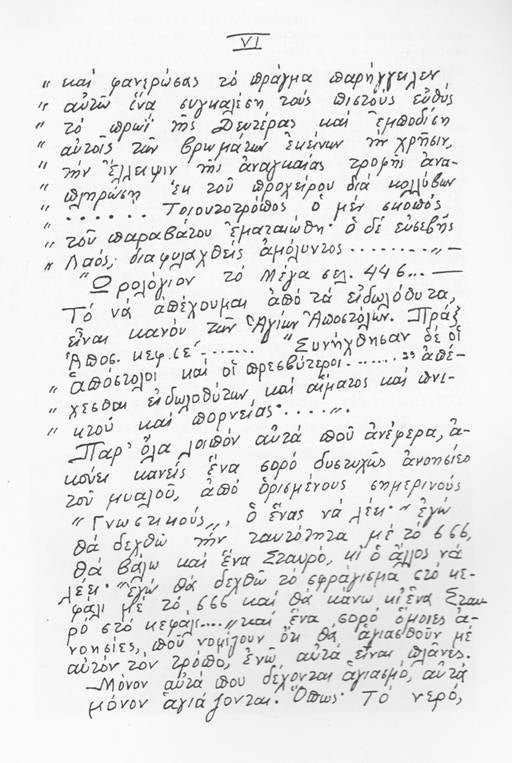 VI
" καί φανερώσας τό πρᾶγμα παρήγγειλεν
" αὐτῶ ἵνα συγκαλέση τούς πιστούς εὐθύς
" τό πρωΐ τῆς Δευτέρας καί ἐμποδίση
" αὐτοῖς τῶν βρωμάτων ἐκείνων τήν χρῆσιν,
" τήν ἔλλειψιν τῆς ἀναγκαίας τροφῆς ἀνα-
" πληρώση ἐκ τοῦ προχείρου διά κολλύβων
" ...... Τοιουτοτρόπως ὁ μέν σκοπός
" τοῦ παραβάτου ἐματαιώθη· ὁ δέ εὐσεβής
" Λαός, διαφυλαχθείς ἀμόλυντος ........ „ —
"Ὡρολόγιον τό Μέγα σελ. 446... —
Τό νά ἀπέχουμαι ἀπό τά εἰδωλόθυτα,
εἶναι κανόν τῶν Ἁγίων Ἀποστόλων. Πράξ
Ἀποσ. κεφ. ιε΄....... "Συνήχθησαν δέ οἱ
" ἀπόστολοι καί οἱ πρεσβύτεροι....... „ ἀπέ-
" χεσθαι εἰδωλοθύτων καί αἵματος καί πνι-
" κτοῦ καί πορνείας.....„.
Παρ' ὅλα λοιπόν αὐτά πού ἀνέφερα, ἀ-
κούει κανείς ἕνα σορό δυστυχῶς ἀνοησίες
τοῦ μυαλοῦ, ἀπό ὁρισμένους σημερινούς
"Γνωστικούς„, ὁ ἕνας νά λέει· "ἐγώ
θά δεχθῶ τήν ταυτότητα μέ τό 666,
θά βάλω καί ἕνα Σταυρό, κι ὁ ἄλλος νά
λέει· "ἐγώ θά δεχθῶ τό σφράγισμα στό κε-
φάλι μέ τό 666 καί θά κάνω κι ἕνα Σταυ
ρό στό κεφάλι....„ καί ἕνα σορό ὅμοιες ἀ-
νοησίες, πού νομίζουν ὅτι θά ἁγιασθοῦν μέ
αὐτόν τόν τρόπο, ἐνῶ αὐτά εἶναι πλάνες.
Μόνον αὐτά που δέχονται ἁγιασμό, αὐτά
μόνον ἁγιάζονται. Ὅπως· Τό νερό,